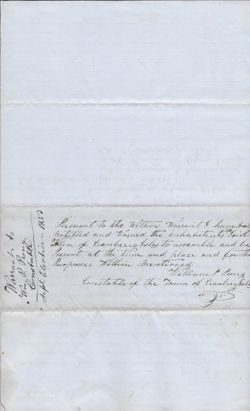 Pursuant to the Within Warrant I have
notified and Warned the inhabitants of said
Town of Cranberry Isles to assemble and be
present at the time and place and for the
purposes Within Mentioned
William P. Preble
Constable of the Town of Cranberry Isles
Warrant to
Wm P. Preble
Constable
September 1853